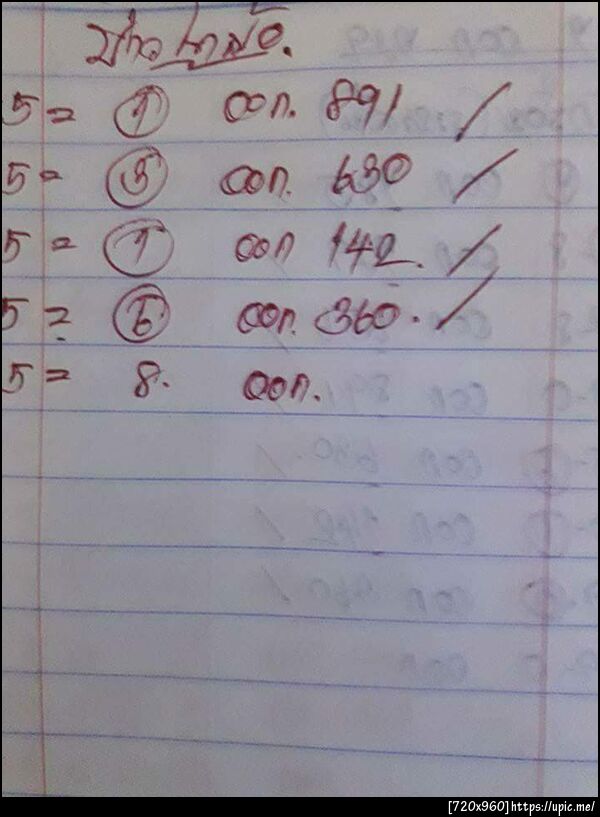 5 = 1 ออก. 891 /
5 = 5 ออก. 630 /
5 = 1 ออก 142. /
5 = 6 ออก. 360. /
5 = 8. ออก.
[720x960]https://upic.me/